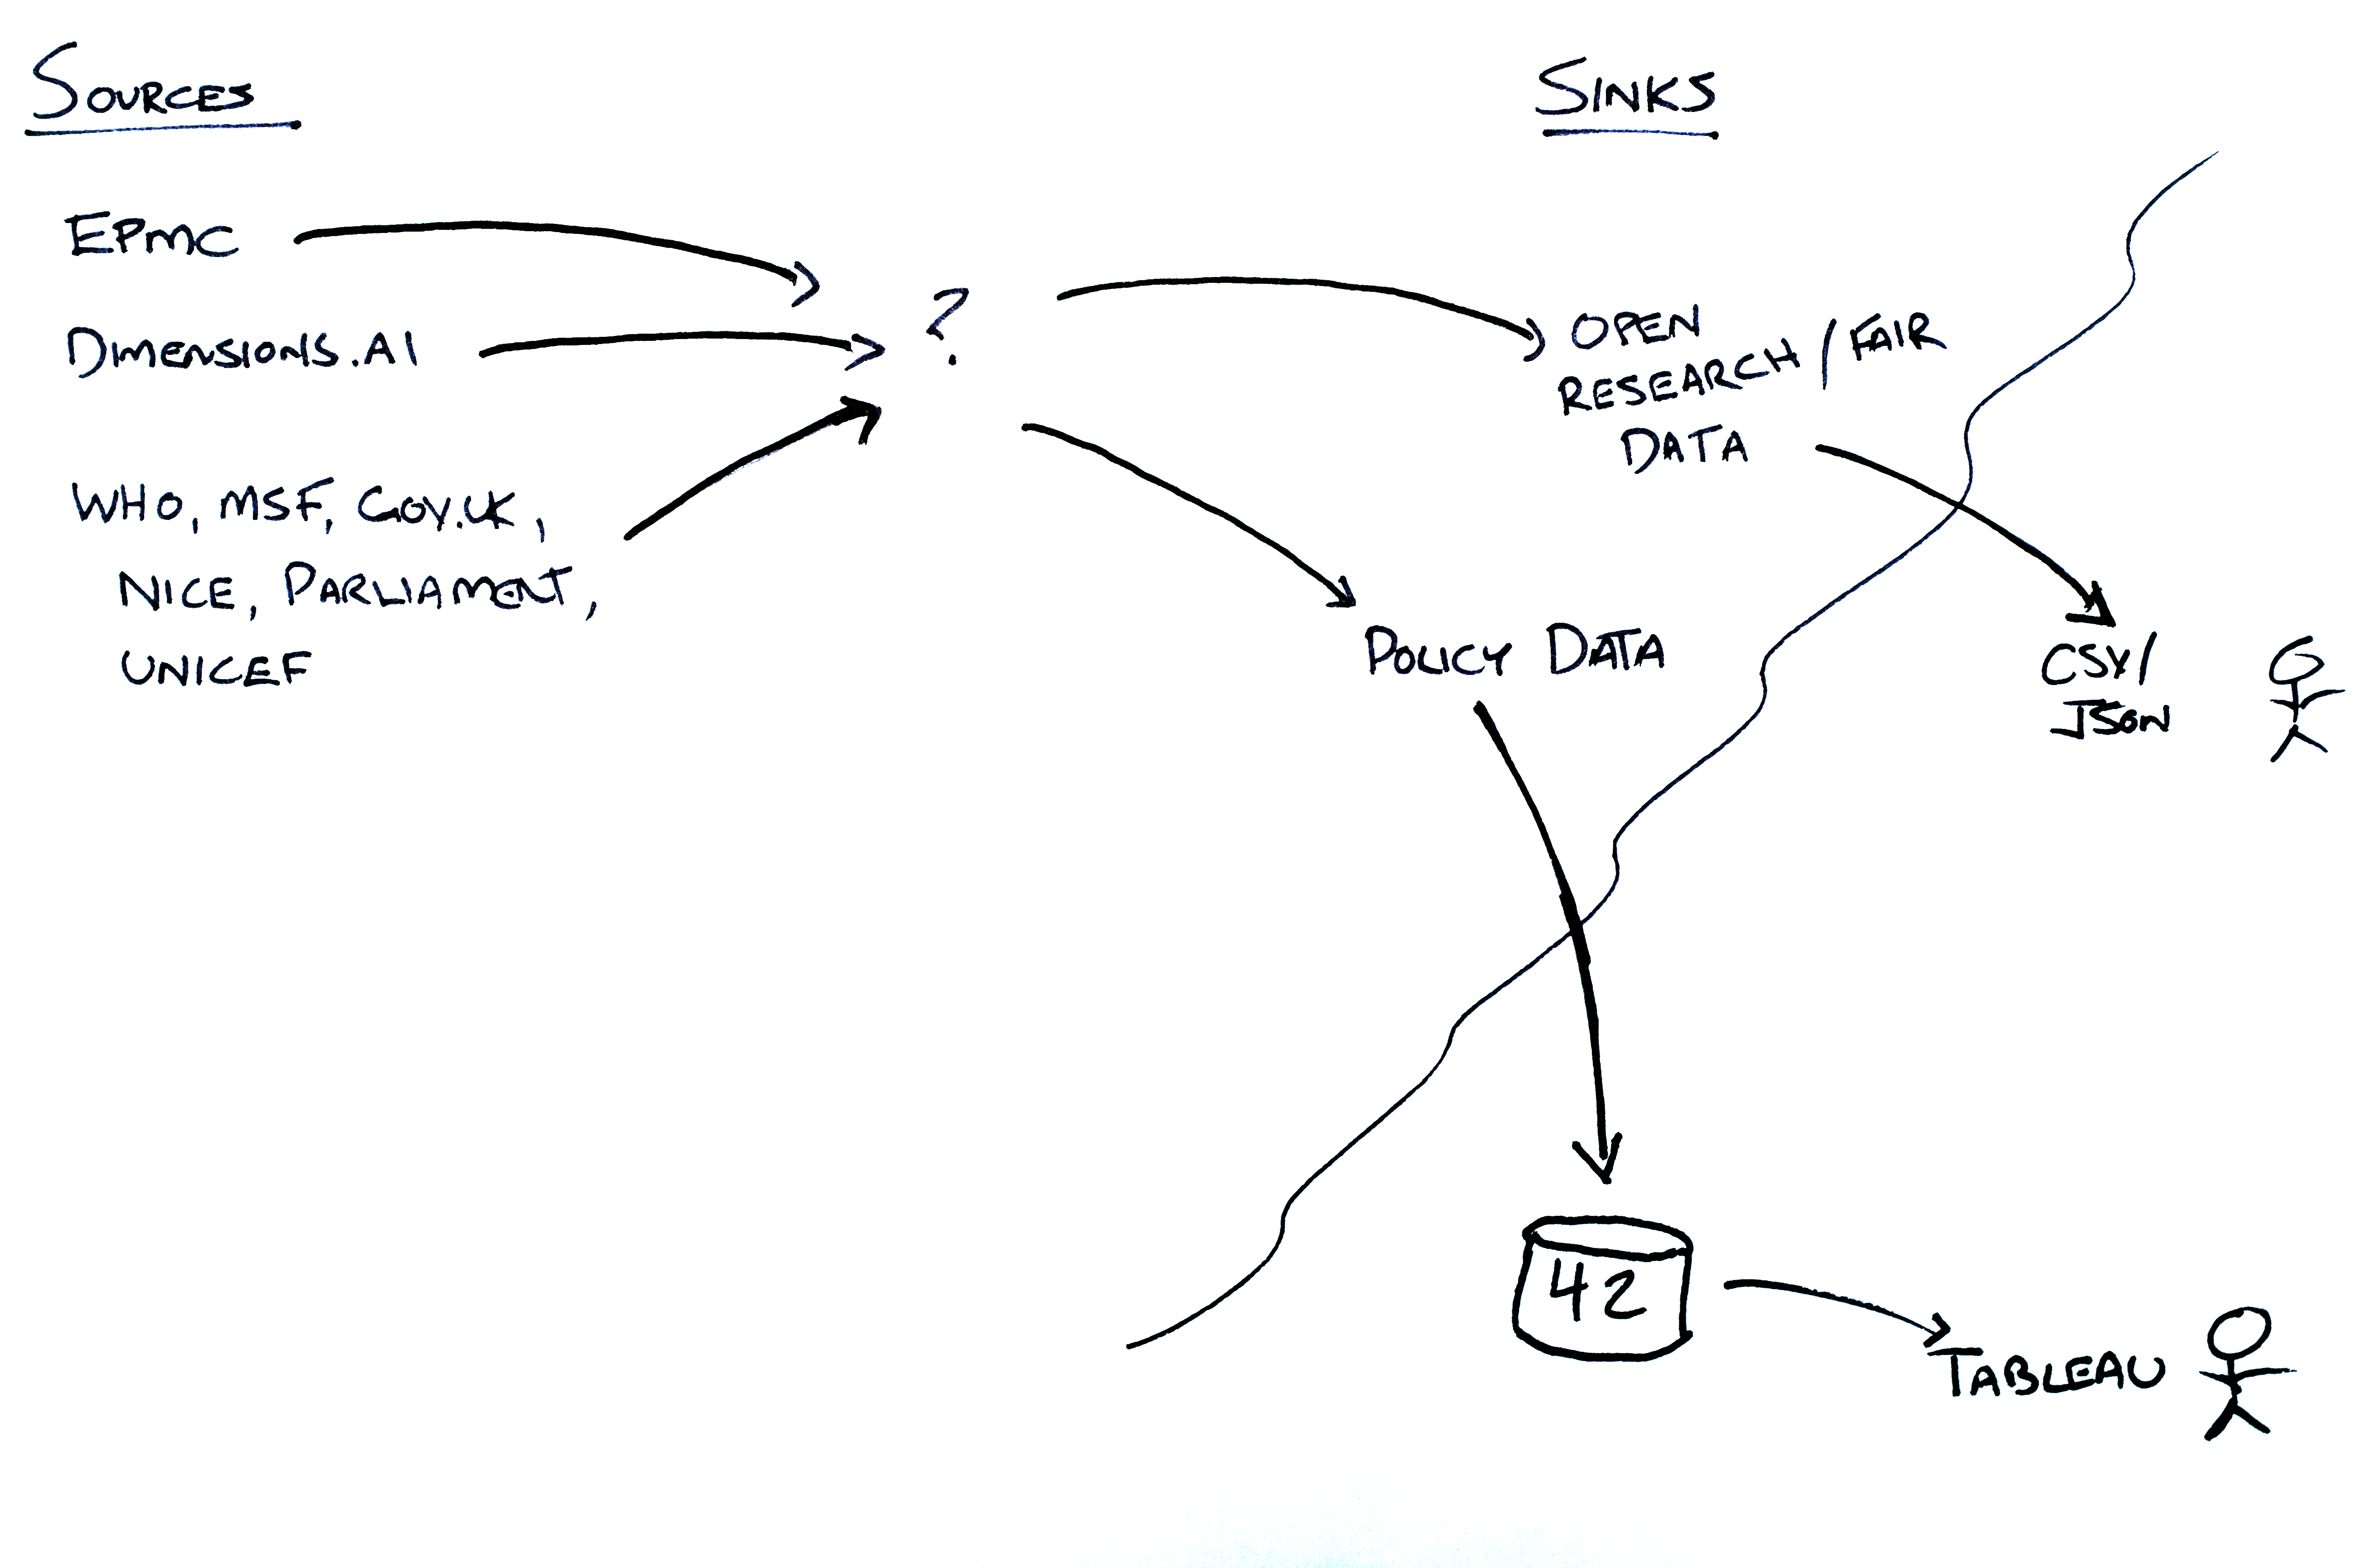 SOURCES
SINKS
EPMC
DIMENSIONS.AI
WHO, MSF, GOV.UK,
NICE, PARLIAMENT,
UNICEF
?
OPEN
RESEARCH / FAIR
DATA
POLICY DATA
CSV/
JSON
42
TABLEAU